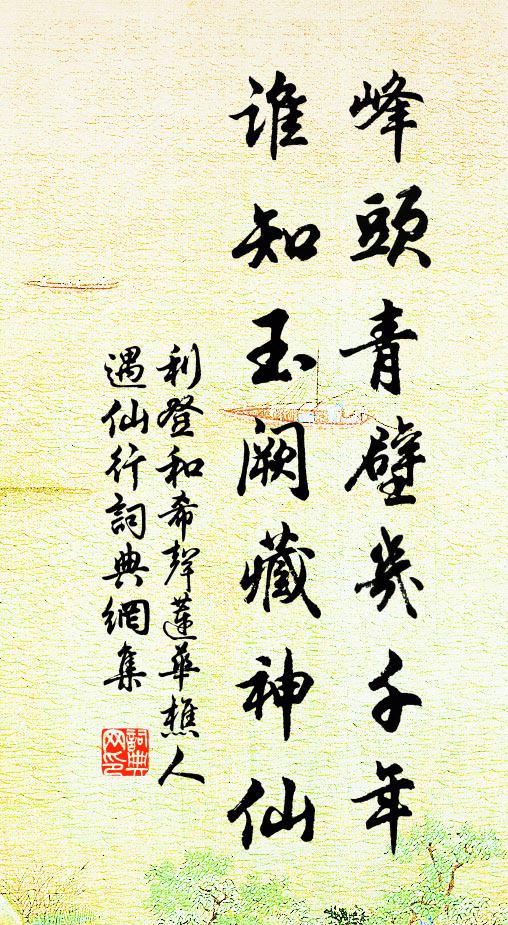 峰頭青壁幾千年
誰知玉闕藏神仙
利登和希聲蓮華樵人
遇仙行詞典網集